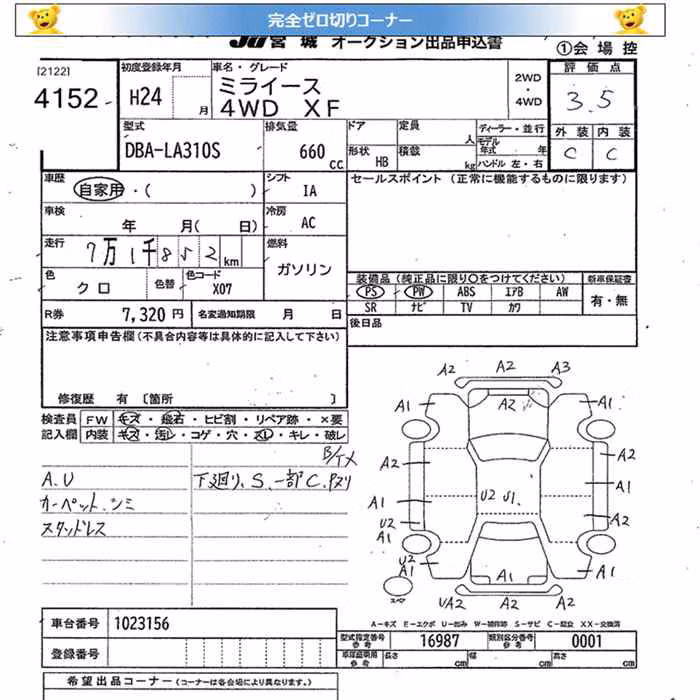 完全ゼロ切りコーナー
JU宮城 オークション出品申込書
①会場控
[2122]
4152
初度登録年月
H24 月
車名・グレード
ミライース
4WD XF
2WD
・
4WD
評価点
3.5
型式
DBA-LA310S
排気量
660 CC
ドア
定員 人
形状
HB
積載 kg
ディーラー・並行
モデル年式 年
ハンドル 左・右
外装 内装
C C
車歴
自家用・( )
シフト
IA
セールスポイント (正常に機能するものに限ります)
車検
年 月( 日)
冷房
AC
走行
7万1千852km
燃料
ガソリン
色
クロ
色替
色コード
X07
装備品 (純正品に限り○をつけてください)
新車保証書
PS PW ABS エアB AW
有・無
SR ナビ TV カワ
R券 7,320円
名変通知期限 月 日
後日品
注意事項申告欄(不具合内容等は具体的に記入して下さい)
修復歴 有 〔箇所 〕
検査員 FW キズ・飛石・ヒビ割・リペア跡・×要
記入欄 内装 キズ・汚レ・コゲ・穴・スレ・キレ・破レ
A.U
カーペット.シミ
スタッドレス
下廻り、S.一部C.
A2 A2 A3
A1 A2 A1
A2 A2
A1 U2 S1. A1
U2 A2
A1
U2
A1 A1 A1
スペア
UA2 A2 A2
A-キズ E-エクボ U-凹み W-補修跡 S-サビ C-腐食 XX-交換済
車台番号 1023156
型式指定番号
参考
16987
類別区分番号
参考
0001
登録番号
車庫証明用
参考
長さ cm 幅 cm 高さ cm
希望出品コーナー (コーナーは各会場により異なります。)